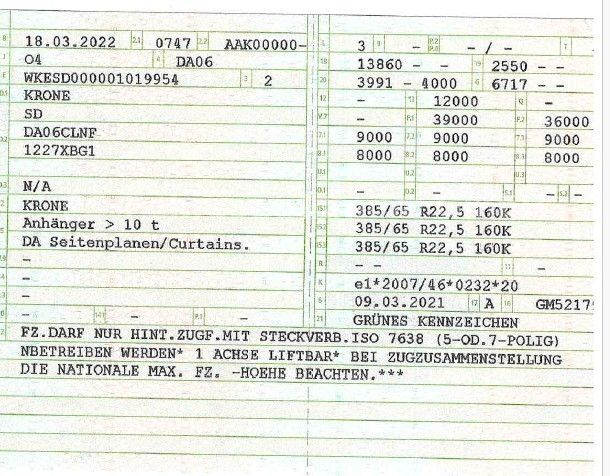 B 18.03.2022 2.1 0747 2.2 AAK00000-
J 04 4 DA06
E WKESD000001019954 3 2
D.1 KRONE
SD
DA06CLNF
1227XBG1
D.3 N/A
2 KRONE
5 Anhänger > 10 t
DA Seitenplanen/Curtains.
-
-
-
- 14.1 - P.1 -
L 3 9 - P.2 P.4 - / - T
18 13860 - - 19 2550 - -
20 3991 - 4000 G 6717 - -
12 - 13 12000 Q -
V.7 - F.1 39000 F.2 36000
7.1 9000 7.2 9000 7.3 9000
8.1 8000 8.2 8000 8.3 8000
U.1 U.2 U.3
O.1 - O.2 - S.1 - S.2 -
15.1 385/65 R22,5 160K
15.2 385/65 R22,5 160K
15.3 385/65 R22,5 160K
R - - 11 -
K e1*2007/46*0232*20
6 09.03.2021 17 A 16 GM5217
21 GRÜNES KENNZEICHEN
FZ.DARF NUR HINT.ZUGF.MIT STECKVERB.ISO 7638 (5-OD.7-POLIG)
NBETREIBEN WERDEN* 1 ACHSE LIFTBAR* BEI ZUGZUSAMMENSTELLUNG
DIE NATIONALE MAX. FZ. -HOEHE BEACHTEN.***